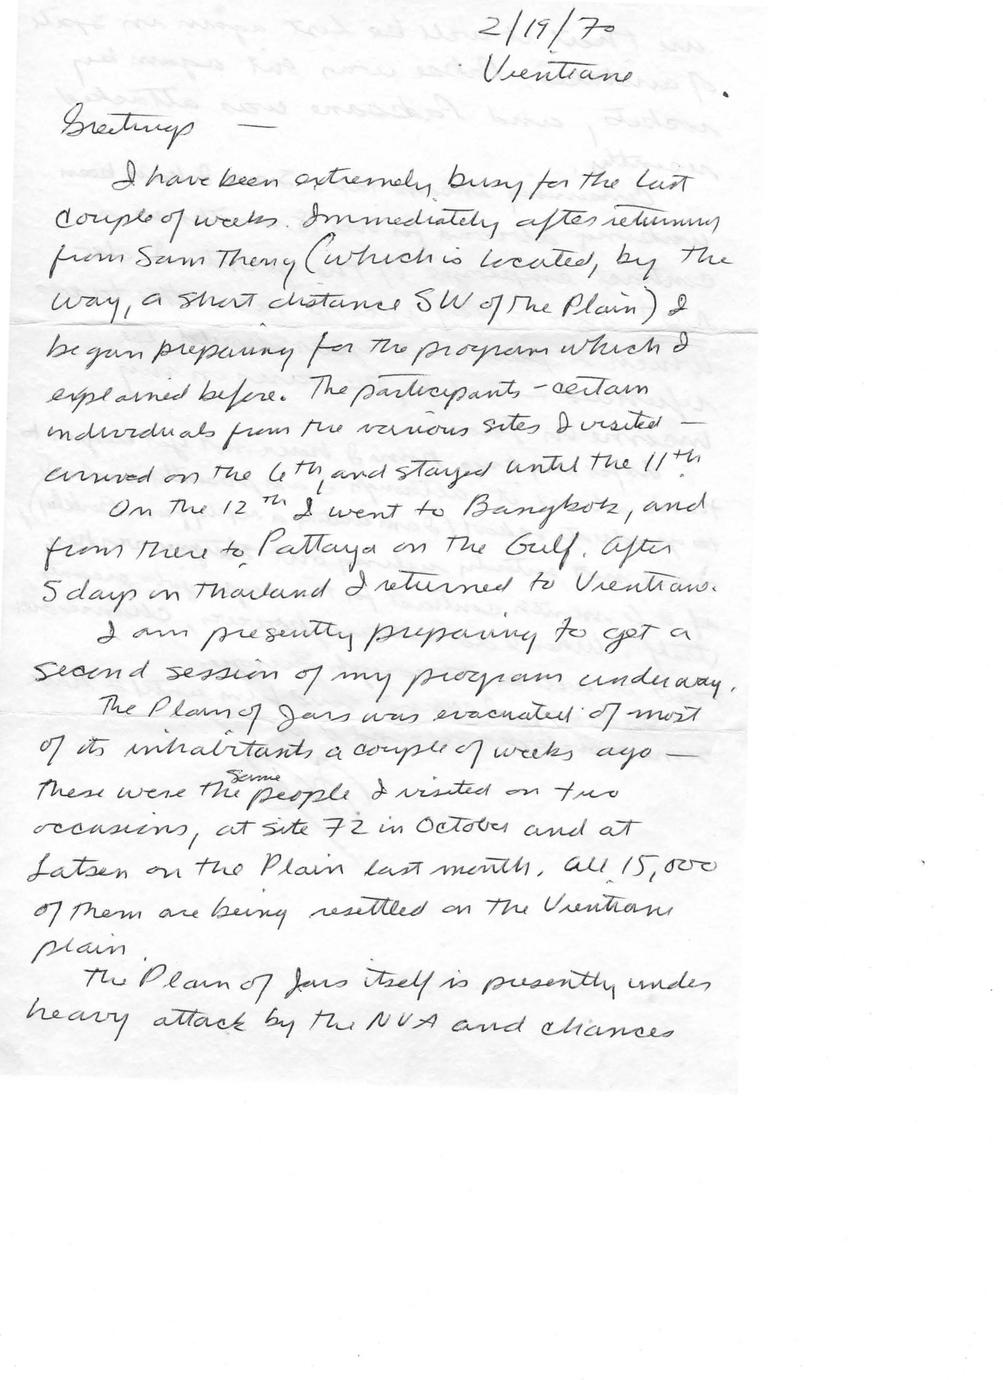 2/19/70
Vientiane
Greetings —
I have been extremely busy for the last
couple of weeks. Immediately after returning
from Sam Thong (which is located, by the
way, a short distance SW of the Plain) I
began preparing for the program which I
explained before. The participants – certain
individuals from the various sites I visited —
arrived on the 6th, and stayed until the 11th
On the 12th I went to Bangkok, and
from there to Pattaya on the Gulf. After
5 days in Thailand I returned to Vientiane.
I am presently preparing to get a
second session of my program underway.
The Plain of Jars was evacuated of most
of its inhabitants a couple of weeks ago —
these were the same people I visited on two
occasions, at site 72 in October and at
Latsen on the Plain last month. All 15,000
of them are being resettled on the Vientiane
plain.
The Plain of Jars itself is presently under
heavy attack by the NVA and chances